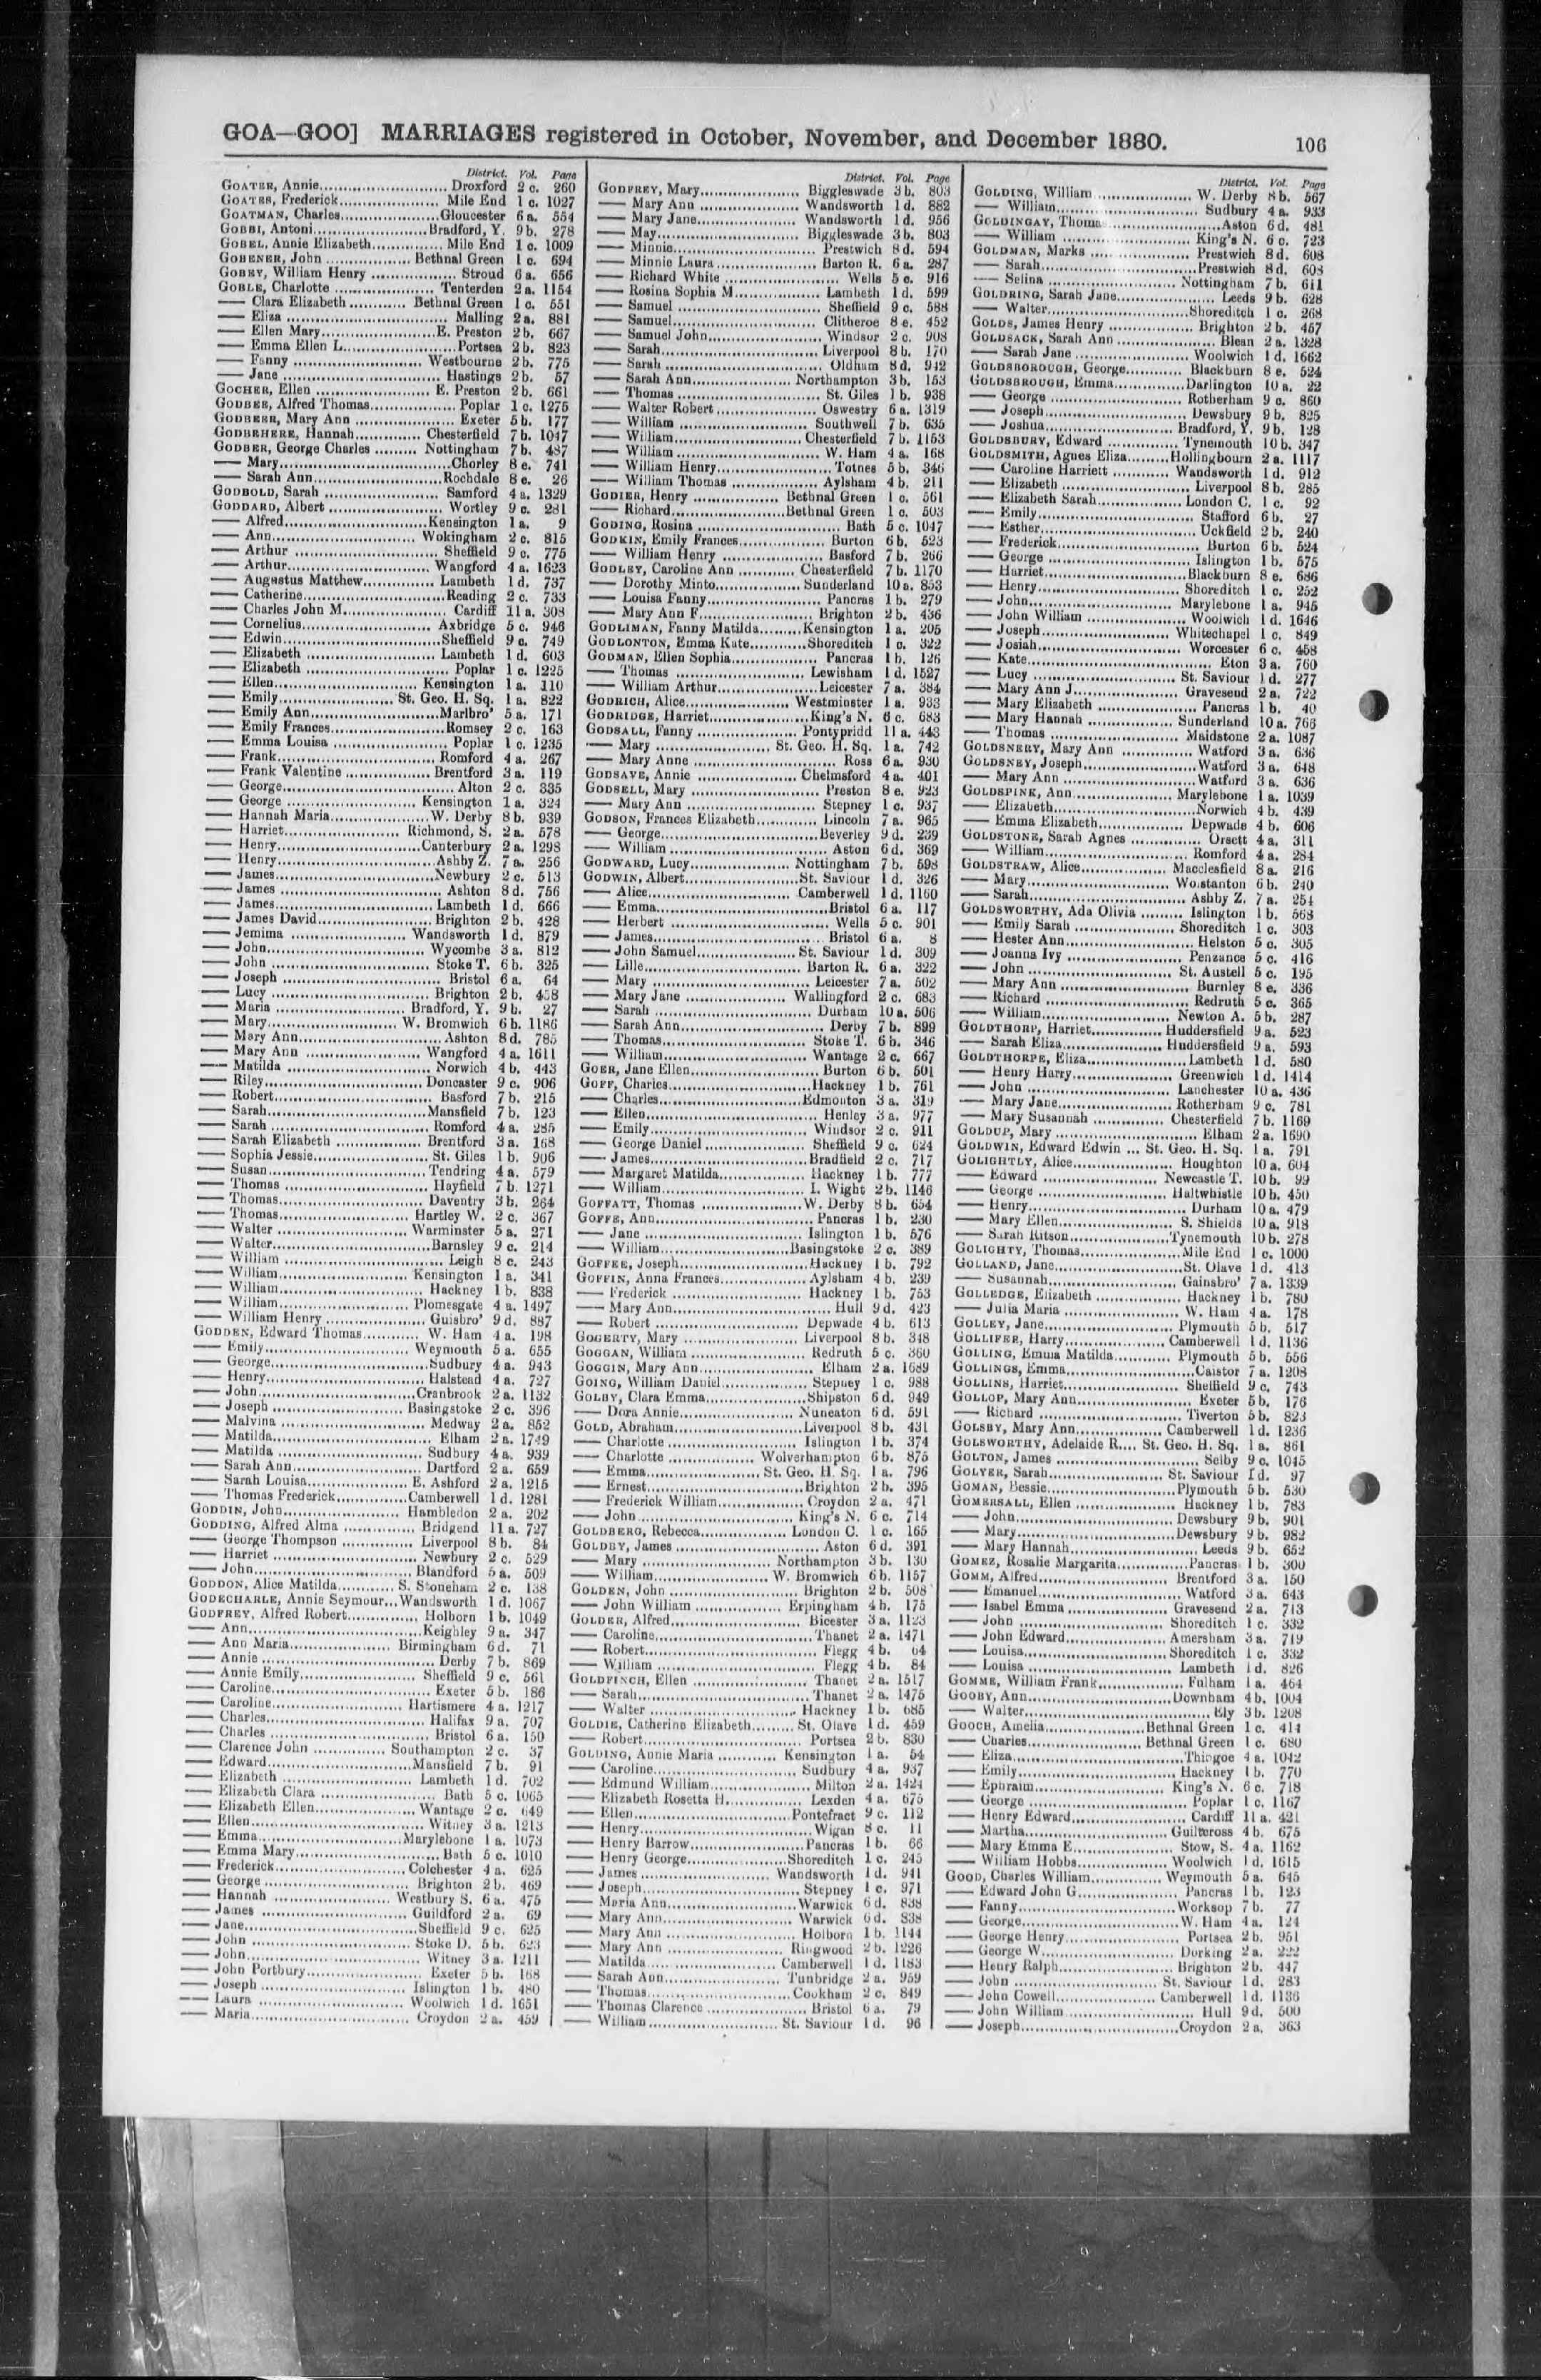 GOA—GOO] MARRIAGES registered in October, November, and December 1880. 106
District. Vol. Page
GOATER, Annie Droxford 2 c. 260
GOATES, Frederick Mile End 1 c. 1027
GOATMAN, Charles Gloucester 6 a. 554
GOBBI, Antoni Bradford, Y. 9 b. 278
GOBEL, Annie Elizabeth Mile End 1 c. 1009
GOBENER, John Bethnal Green 1 c. 694
GOBEY, William Henry Stroud 6 a. 656
GOBLE, Charlotte Tenterden 2 a. 1154
— Clara Elizabeth Bethnal Green 1 c. 551
— Eliza Malling 2 a. 881
— Ellen Mary E. Preston 2 b. 667
— Emma Ellen L. Portsea 2 b. 823
— Fanny Westbourne 2 b. 775
— Jane Hastings 2 b. 57
GOCHER, Ellen E. Preston 2 b. 661
GODBER, Alfred Thomas Poplar 1 c. 1275
GODBEER, Mary Ann Exeter 5 b. 177
GODBEHERE, Hannah Chesterfield 7 b. 1047
GODBER, George Charles Nottingham 7 b. 487
— Mary Chorley 8 e. 741
— Sarah Ann Rochdale 8 e. 26
GODBOLD, Sarah Samford 4 a. 1329
GODDARD, Albert Wortley 9 c. 281
— Alfred Kensington 1 a. 9
— Ann Wokingham 2 c. 815
— Arthur Sheffield 9 c. 775
— Arthur Wangford 4 a. 1623
— Augustus Matthew Lambeth 1 d. 737
— Catherine Reading 2 c. 733
— Charles John M. Cardiff 11 a. 308
— Cornelius Axbridge 5 c. 946
— Edwin Sheffield 9 c. 749
— Elizabeth Lambeth 1 d. 603
— Elizabeth Poplar 1 c. 1225
— Ellen Kensington 1 a. 110
— Emily St. Geo. H. Sq. 1 a. 822
— Emily Ann Marlbro' 5 a. 171
— Emily Frances Romsey 2 c. 163
— Emma Louisa Poplar 1 c. 1235
— Frank Romford 4 a. 267
— Frank Valentine Brentford 3 a. 119
— George Alton 2 c. 335
— George Kensington 1 a. 324
— Hannah Maria W. Derby 8 b. 939
— Harriet Richmond, S. 2 a. 578
— Henry Canterbury 2 a. 1298
— Henry Ashby Z. 7 a. 256
— James Newbury 2 c. 513
— James Ashton 8 d. 756
— James Lambeth 1 d. 666
— James David Brighton 2 b. 428
— Jemima Wandsworth 1 d. 879
— John Wycombe 3 a. 812
— John Stoke T. 6 b. 325
— Joseph Bristol 6 a. 64
— Lucy Brighton 2 b. 458
— Maria Bradford, Y. 9 b. 27
— Mary W. Bromwich 6 b. 1186
— Mary Ann Ashton 8 d. 785
— Mary Ann Wangford 4 a. 1611
— Matilda Norwich 4 b. 443
— Riley Doncaster 9 c. 906
— Robert Basford 7 b. 215
— Sarah Mansfield 7 b. 123
— Sarah Romford 4 a. 285
— Sarah Elizabeth Brentford 3 a. 168
— Sophia Jessie St. Giles 1 b. 906
— Susan Tendring 4 a. 579
— Thomas Hayfield 7 b. 1271
— Thomas Daventry 3 b. 264
— Thomas Hartley W. 2 c. 367
— Walter Warminster 5 a. 271
— Walter Barnsley 9 c. 214
— William Leigh 8 c. 243
— William Kensington 1 a. 341
— William Hackney 1 b. 838
— William Plomesgate 4 a. 1497
— William Henry Guisbro' 9 d. 887
GODDEN, Edward Thomas W. Ham 4 a. 198
— Emily Weymouth 5 a. 655
— George Sudbury 4 a. 943
— Henry Halstead 4 a. 727
— John Cranbrook 2 a. 1132
— Joseph Basingstoke 2 c. 396
— Malvina Medway 2 a. 852
— Matilda Elham 2 a. 1749
— Matilda Sudbury 4 a. 939
— Sarah Ann Dartford 2 a. 659
— Sarah Louisa E. Ashford 2 a. 1215
— Thomas Frederick Camberwell 1 d. 1281
GODDIN, John Hambledon 2 a. 202
GODDING, Alfred Alma Bridgend 11 a. 727
— George Thompson Liverpool 8 b. 84
— Harriet Newbury 2 c. 529
— John Blandford 5 a. 509
GODDON, Alice Matilda S. Stoneham 2 c. 138
GODECHARLE, Annie Seymour Wandsworth 1 d. 1067
GODFREY, Alfred Robert Holborn 1 b. 1049
— Ann Keighley 9 a. 347
— Ann Maria Birmingham 6 d. 71
— Annie Derby 7 b. 869
— Annie Emily Sheffield 9 c. 561
— Caroline Exeter 5 b. 186
— Caroline Hartismere 4 a. 1217
— Charles Halifax 9 a. 707
— Charles Bristol 6 a. 150
— Clarence John Southampton 2 c. 37
— Edward Mansfield 7 b. 91
— Elizabeth Lambeth 1 d. 702
— Elizabeth Clara Bath 5 c. 1065
— Elizabeth Ellen Wantage 2 c. 649
— Ellen Witney 3 a. 1213
— Emma Marylebone 1 a. 1073
— Emma Mary Bath 5 c. 1010
— Frederick Colchester 4 a. 625
— George Brighton 2 b. 469
— Hannah Westbury S. 6 a. 475
— James Guildford 2 a. 69
— Jane Sheffield 9 c. 625
— John Stoke D. 5 b. 623
— John Witney 3 a. 1211
— John Portbury Exeter 5 b. 168
— Joseph Islington 1 b. 480
— Laura Woolwich 1 d. 1651
— Maria Croydon 2 a. 459
District. Vol. Page
GODFREY, Mary Biggleswade 3 b. 803
— Mary Ann Wandsworth 1 d. 882
— Mary Jane Wandsworth 1 d. 956
— May Biggleswade 3 b. 803
— Minnie Prestwich 8 d. 594
— Minnie Laura Barton R. 6 a. 287
— Richard White Wells 5 c. 916
— Rosina Sophia M. Lambeth 1 d. 599
— Samuel Sheffield 9 c. 588
— Samuel Clitheroe 8 e. 452
— Samuel John Windsor 2 c. 908
— Sarah Liverpool 8 b. 170
— Sarah Oldham 8 d. 942
— Sarah Ann Northampton 3 b. 153
— Thomas St. Giles 1 b. 938
— Walter Robert Oswestry 6 a. 1319
— William Southwell 7 b. 635
— William Chesterfield 7 b. 1153
— William W. Ham 4 a. 168
— William Henry Totnes 5 b. 346
— William Thomas Aylsham 4 b. 211
GODIER, Henry Bethnal Green 1 c. 561
— Richard Bethnal Green 1 c. 503
GODING, Rosina Bath 5 c. 1047
GODKIN, Emily Frances Burton 6 b. 523
— William Henry Basford 7 b. 266
GODLEY, Caroline Ann Chesterfield 7 b. 1170
— Dorothy Minto Sunderland 10 a. 853
— Louisa Fanny Pancras 1 b. 279
— Mary Ann F. Brighton 2 b. 436
GODLIMAN, Fanny Matilda Kensington 1 a. 205
GODLONTON, Emma Kate Shoreditch 1 c. 322
GODMAN, Ellen Sophia Pancras 1 b. 126
— Thomas Lewisham 1 d. 1527
— William Arthur Leicester 7 a. 384
GODRICH, Alice Westminster 1 a. 933
GODRIDGE, Harriet King's N. 6 c. 683
GODSALL, Fanny Pontypridd 11 a. 443
— Mary St. Geo. H. Sq. 1 a. 742
— Mary Anne Ross 6 a. 930
GODSAVE, Annie Chelmsford 4 a. 401
GODSELL, Mary Preston 8 e. 923
— Mary Ann Stepney 1 c. 937
GODSON, Frances Elizabeth Lincoln 7 a. 965
— George Beverley 9 d. 239
— William Aston 6 d. 369
GODWARD, Lucy Nottingham 7 b. 598
GODWIN, Albert St. Saviour 1 d. 326
— Alice Camberwell 1 d. 1160
— Emma Bristol 6 a. 117
— Herbert Wells 5 c. 901
— James Bristol 6 a. 8
— John Samuel St. Saviour 1 d. 309
— Lille Barton R. 6 a. 322
— Mary Leicester 7 a. 502
— Mary Jane Wallingford 2 c. 683
— Sarah Durham 10 a. 506
— Sarah Ann Derby 7 b. 899
— Thomas Stoke T. 6 b. 346
— William Wantage 2 c. 667
GOER, Jane Ellen Burton 6 b. 501
GOFF, Charles Hackney 1 b. 761
— Charles Edmonton 3 a. 319
— Ellen Henley 3 a. 977
— Emily Windsor 2 c. 911
— George Daniel Sheffield 9 c. 624
— James Bradfield 2 c. 717
— Margaret Matilda Hackney 1 b. 777
— William I. Wight 2 b. 1146
GOFFATT, Thomas W. Derby 8 b. 654
GOFFE, Ann Pancras 1 b. 230
— Jane Islington 1 b. 576
— William Basingstoke 2 c. 389
GOFFEE, Joseph Hackney 1 b. 792
GOFFIN, Anna Frances Aylsham 4 b. 239
— Frederick Hackney 1 b. 753
— Mary Ann Hull 9 d. 423
— Robert Depwade 4 b. 613
GOGERTY, Mary Liverpool 8 b. 348
GOGGAN, William Redruth 5 c. 360
GOGGIN, Mary Ann Elham 2 a. 1689
GOING, William Daniel Stepney 1 c. 988
GOLBY, Clara Emma Shipston 6 d. 949
— Dora Annie Nuneaton 6 d. 591
GOLD, Abraham Liverpool 8 b. 431
— Charlotte Islington 1 b. 374
— Charlotte Wolverhampton 6 b. 875
— Emma St. Geo. H. Sq. 1 a. 796
— Ernest Brighton 2 b. 395
— Frederick William Croydon 2 a. 471
— John King's N. 6 c. 714
GOLDBERG, Rebecca London C. 1 c. 165
GOLDBY, James Aston 6 d. 391
— Mary Northampton 3 b. 130
— William W. Bromwich 6 b. 1157
GOLDEN, John Brighton 2 b. 508
— John William Erpingham 4 b. 175
GOLDER, Alfred Bicester 3 a. 1123
— Caroline Thanet 2 a. 1471
— Robert Flegg 4 b. 64
— William Flegg 4 b. 84
GOLDFINCH, Ellen Thanet 2 a. 1517
— Sarah Thanet 2 a. 1475
— Walter Hackney 1 b. 685
GOLDIE, Catherine Elizabeth St. Olave 1 d. 459
— Robert Portsea 2 b. 830
GOLDING, Annie Maria Kensington 1 a. 54
— Caroline Sudbury 4 a. 937
— Edmund William Milton 2 a. 1424
— Elizabeth Rosetta H. Lexden 4 a. 675
— Ellen Pontefract 9 c. 112
— Henry Wigan 8 c. 11
— Henry Barrow Pancras 1 b. 66
— Henry George Shoreditch 1 c. 245
— James Wandsworth 1 d. 941
— Joseph Stepney 1 c. 971
— Maria Ann Warwick 6 d. 838
— Mary Ann Warwick 6 d. 838
— Mary Ann Holborn 1 b. 1144
— Mary Ann Ringwood 2 b. 1226
— Matilda Camberwell 1 d. 1183
— Sarah Ann Tunbridge 2 a. 959
— Thomas Cookham 2 c. 849
— Thomas Clarence Bristol 6 a. 79
— William St. Saviour 1 d. 96
District. Vol. Page
GOLDING, William W. Derby 8 b. 567
— William Sudbury 4 a. 933
GOLDINGAY, Thomas Aston 6 d. 481
— William King's N. 6 c. 723
GOLDMAN, Marks Prestwich 8 d. 608
— Sarah Prestwich 8 d. 608
— Selina Nottingham 7 b. 611
GOLDRING, Sarah Jane Leeds 9 b. 628
— Walter Shoreditch 1 c. 268
GOLDS, James Henry Brighton 2 b. 457
GOLDSACK, Sarah Ann Blean 2 a. 1328
— Sarah Jane Woolwich 1 d. 1662
GOLDSBOROUGH, George Blackburn 8 e. 524
GOLDSBROUGH, Emma Darlington 10 a. 22
— George Rotherham 9 c. 860
— Joseph Dewsbury 9 b. 825
— Joshua Bradford, Y. 9 b. 128
GOLDSBURY, Edward Tynemouth 10 b. 347
GOLDSMITH, Agnes Eliza Hollingbourn 2 a. 1117
— Caroline Harriett Wandsworth 1 d. 912
— Elizabeth Liverpool 8 b. 285
— Elizabeth Sarah London C. 1 c. 92
— Emily Stafford 6 b. 27
— Esther Uckfield 2 b. 240
— Frederick Burton 6 b. 524
— George Islington 1 b. 575
— Harriet Blackburn 8 e. 686
— Henry Shoreditch 1 c. 252
— John Marylebone 1 a. 945
— John William Woolwich 1 d. 1646
— Joseph Whitechapel 1 c. 849
— Josiah Worcester 6 c. 458
— Kate Eton 3 a. 760
— Lucy St. Saviour 1 d. 277
— Mary Ann J. Gravesend 2 a. 722
— Mary Elizabeth Pancras 1 b. 40
— Mary Hannah Sunderland 10 a. 766
— Thomas Maidstone 2 a. 1087
GOLDSNERY, Mary Ann Watford 3 a. 636
GOLDSNEY, Joseph Watford 3 a. 648
— Mary Ann Watford 3 a. 636
GOLDSPINK, Ann Marylebone 1 a. 1039
— Elizabeth Norwich 4 b. 439
— Emma Elizabeth Depwade 4 b. 606
GOLDSTONE, Sarah Agnes Orsett 4 a. 311
— William Romford 4 a. 284
GOLDSTRAW, Alice Macclesfield 8 a. 216
— Mary Wolstanton 6 b. 240
— Sarah Ashby Z. 7 a. 251
GOLDSWORTHY, Ada Olivia Islington 1 b. 568
— Emily Sarah Shoreditch 1 c. 303
— Hester Ann Helston 5 c. 305
— Joanna Ivy Penzance 5 c. 416
— John St. Austell 5 c. 195
— Mary Ann Burnley 8 e. 336
— Richard Redruth 5 c. 365
— William Newton A. 5 b. 287
GOLDTHORP, Harriet Huddersfield 9 a. 523
— Sarah Eliza Huddersfield 9 a. 593
GOLDTHORPE, Eliza Lambeth 1 d. 580
— Henry Harry Greenwich 1 d. 1414
— John Lanchester 10 a. 436
— Mary Jane Rotherham 9 c. 781
— Mary Susannah Chesterfield 7 b. 1169
GOLDUP, Mary Elham 2 a. 1690
GOLDWIN, Edward Edwin St. Geo. H. Sq. 1 a. 791
GOLIGHTLY, Alice Houghton 10 a. 604
— Edward Newcastle T. 10 b. 99
— George Haltwhistle 10 b. 450
— Henry Durham 10 a. 479
— Mary Ellen S. Shields 10 a. 918
— Sarah Ritson Tynemouth 10 b. 278
GOLIGHTY, Thomas Mile End 1 c. 1000
GOLLAND, Jane St. Olave 1 d. 413
— Susannah Gainsbro' 7 a. 1339
GOLLEDGE, Elizabeth Hackney 1 b. 780
— Julia Maria W. Ham 4 a. 178
GOLLEY, Jane Plymouth 5 b. 517
GOLLIFER, Harry Camberwell 1 d. 1136
GOLLING, Emma Matilda Plymouth 5 b. 556
GOLLINGS, Emma Caistor 7 a. 1208
GOLLINS, Harriet Sheffield 9 c. 743
GOLLOP, Mary Ann Exeter 5 b. 176
— Richard Tiverton 5 b. 823
GOLSBY, Mary Ann Camberwell 1 d. 1236
GOLSWORTHY, Adelaide R. St. Geo. H. Sq. 1 a. 861
GOLTON, James Selby 9 c. 1045
GOLYER, Sarah St. Saviour 1 d. 97
GOMAN, Bessie Plymouth 5 b. 530
GOMERSALL, Ellen Hackney 1 b. 783
— John Dewsbury 9 b. 901
— Mary Dewsbury 9 b. 982
— Mary Hannah Leeds 9 b. 652
GOMEZ, Rosalie Margarita Pancras 1 b. 300
GOMM, Alfred Brentford 3 a. 150
— Emanuel Watford 3 a. 643
— Isabel Emma Gravesend 2 a. 713
— John Shoreditch 1 c. 332
— John Edward Amersham 3 a. 719
— Louisa Shoreditch 1 c. 332
— Louisa Lambeth 1 d. 826
GOMME, William Frank Fulham 1 a. 464
GOOBY, Ann Downham 4 b. 1004
— Walter Ely 3 b. 1208
GOOCH, Amelia Bethnal Green 1 c. 414
— Charles Bethnal Green 1 c. 680
— Eliza Thingoe 4 a. 1042
— Emily Hackney 1 b. 770
— Ephraim King's N. 6 c. 718
— George Poplar 1 c. 1167
— Henry Edward Cardiff 11 a. 421
— Martha Guiltcross 4 b. 675
— Mary Emma E. Stow, S. 4 a. 1162
— William Hobbs Woolwich 1 d. 1615
GOOD, Charles William Weymouth 5 a. 645
— Edward John G. Pancras 1 b. 123
— Fanny Worksop 7 b. 77
— George W. Ham 4 a. 124
— George Henry Portsea 2 b. 951
— George W. Dorking 2 a. 222
— Henry Ralph Brighton 2 b. 447
— John St. Saviour 1 d. 283
— John Cowell Camberwell 1 d. 1136
— John William Hull 9 d. 500
— Joseph Croydon 2 a. 363